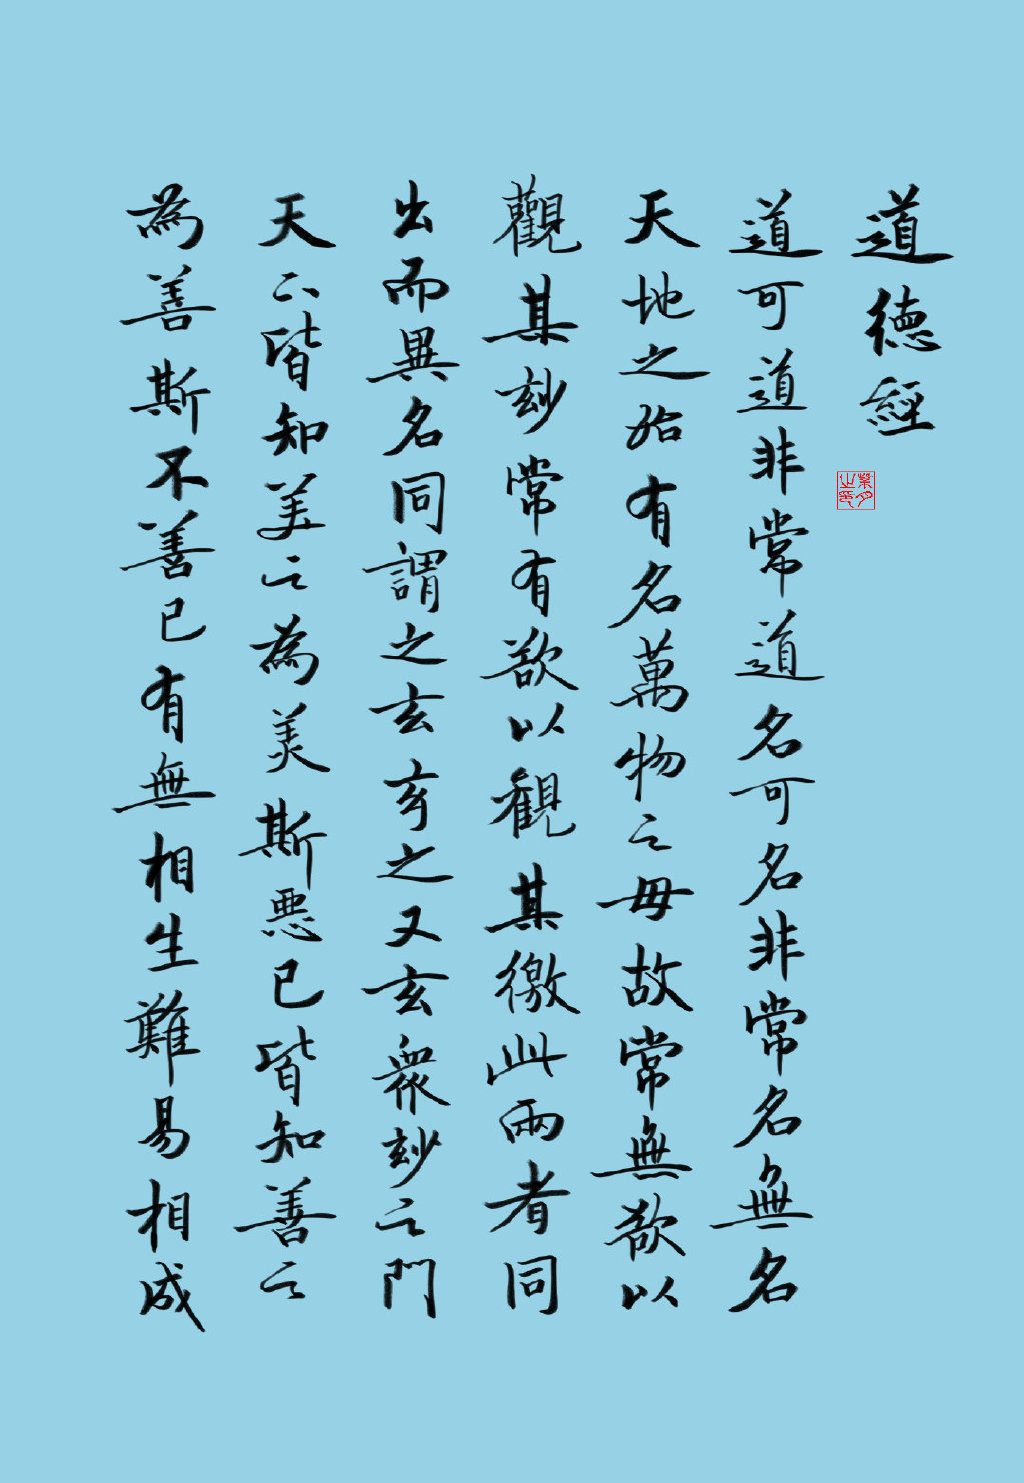 道德經
道可道非常道名可名非常名無名
天地之始有名萬物之母故常無欲以
觀其玅常有欲以觀其徼此兩者同
出而異名同謂之玄玄之又玄眾玅之門
天下皆知美之為美斯惡已皆知善之
為善斯不善已有無相生難易相成